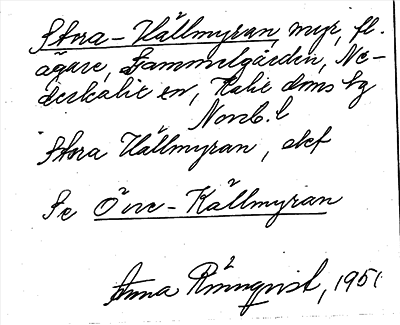 Stora-Källmyran, myr, fl.
ägare, Gammelgården, Ne-
derkalix sn, Kalix doms hg
Norrb. l
Stora Källmyran, ekf
Se Övre-Källmyran
Anna Rönnqvist, 1951